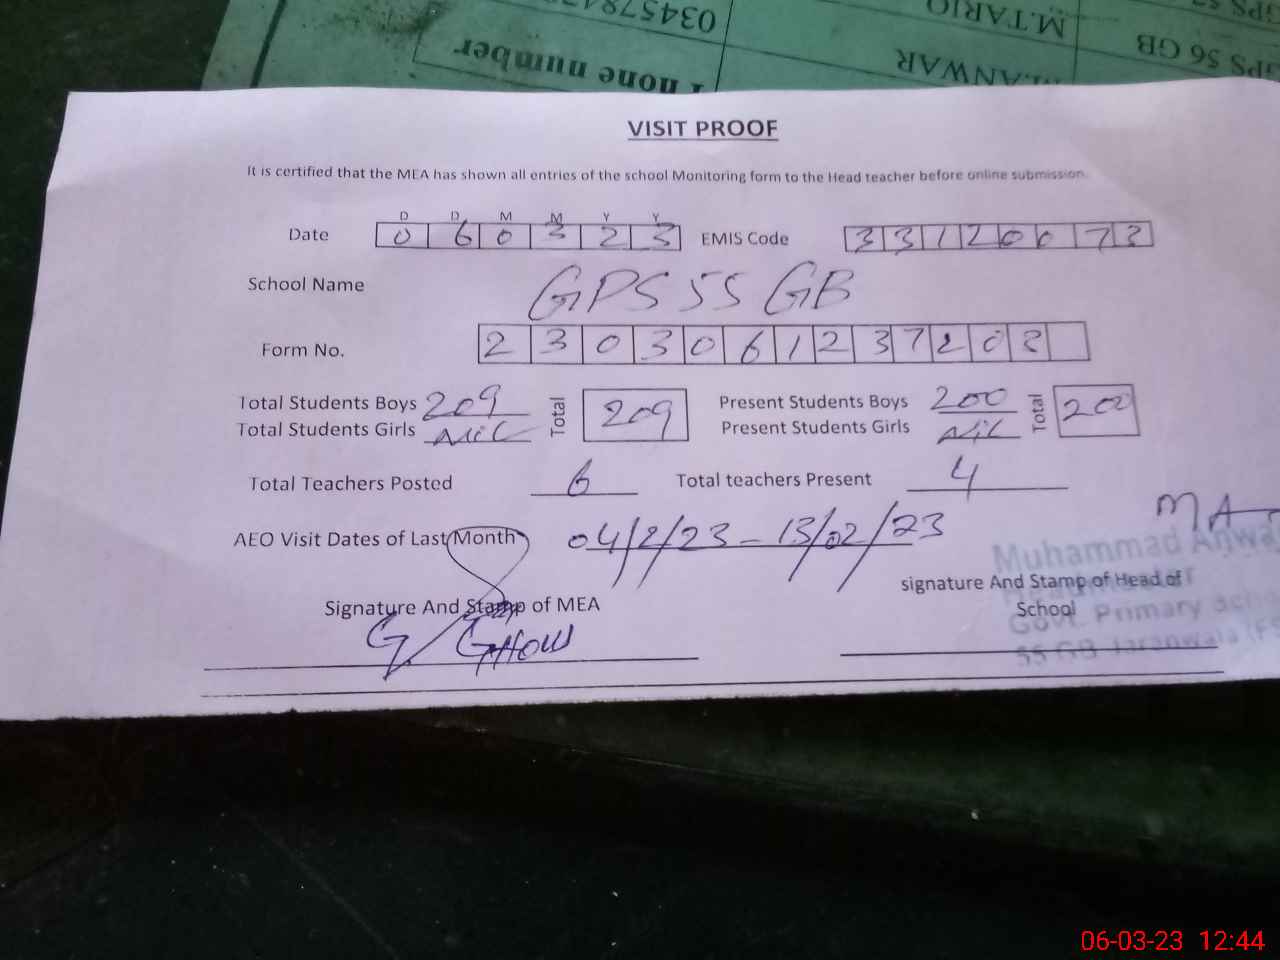 03457847
M.TARIQ
GPS 57
Phone number
M.ANWAR
GPS 56 GB
VISIT PROOF
It is certified that the MEA has shown all entries of the school Monitoring form to the Head teacher before online submission.
D D M M Y Y
Date 0 6 0 3 2 3 EMIS Code 3 3 1 2 0 0 7 3
School Name GPS 55 GB
Form No. 2 3 0 3 0 6 1 2 3 7 2 0 2
Total Students Boys 209 Total 209 Present Students Boys 200 Total 200
Total Students Girls Nil Present Students Girls Nil
Total Teachers Posted 6 Total teachers Present 4
AEO Visit Dates of Last Month 04/2/23 - 13/02/23
MA
Muhammad Anwa
signature And Stamp of Head of
School
Govt. Primary Scho
55 GB Jaranwala (FS
Signature And Stamp of MEA
06-03-23 12:44